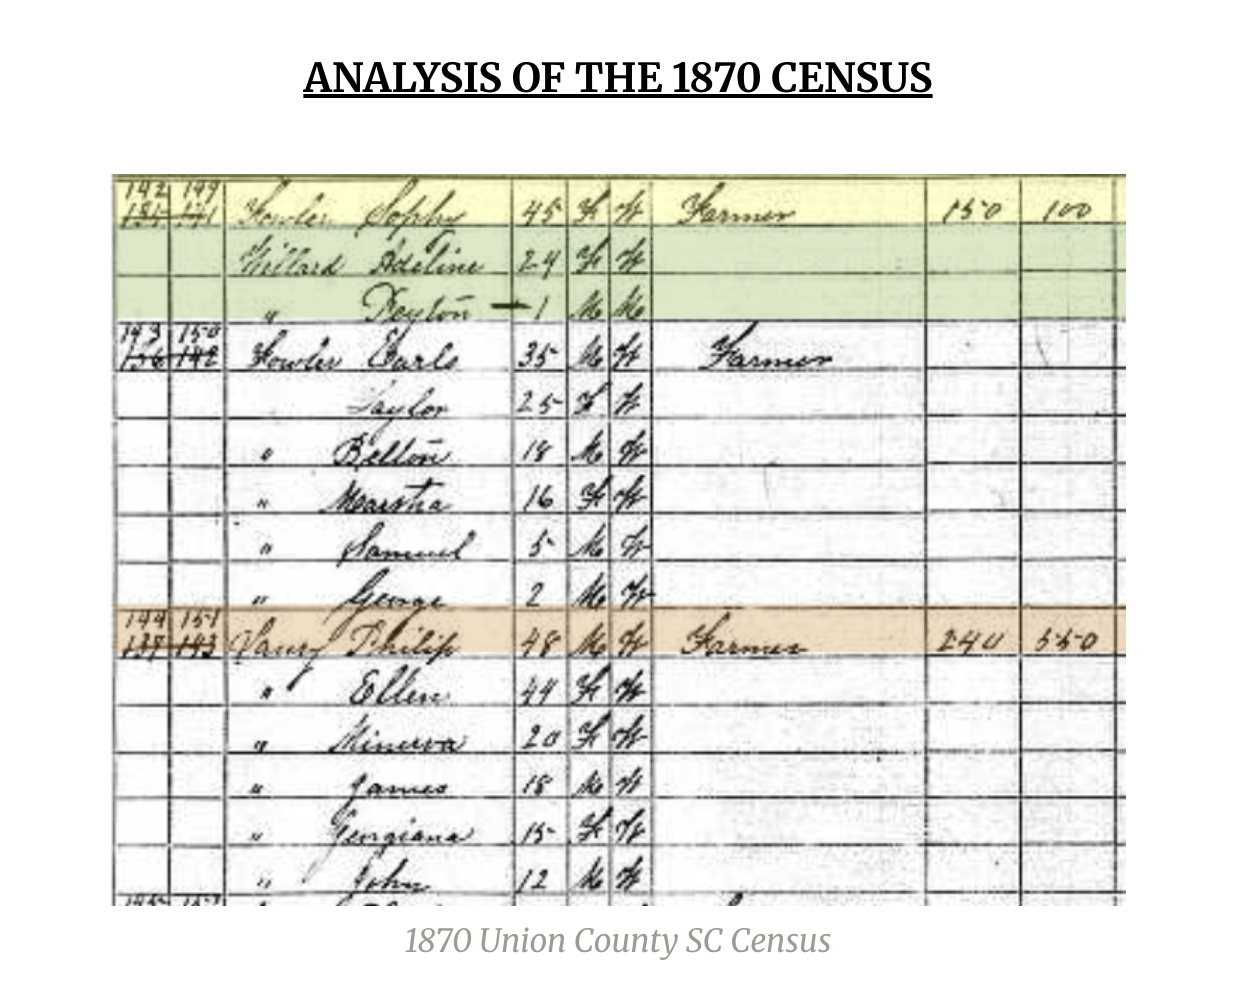 ANALYSIS OF THE 1870 CENSUS
142 149
Fowler Sophy 45 F W Farmer 150 100
Willard Adeline 24 F W
" Peyton 1 M M
143 150
Fowler Earls 35 M W Farmer
Taylor 25 F W
" Belton 18 M W
" Martha 16 F W
" Samuel 5 M W
" George 2 M W
144 151
137 143 Vancy Philip 48 M W Farmer 240 550
" Ellen 44 F W
" Minerva 20 F W
" James 18 M W
" Georgiana 15 F W
" John 12 M W
1870 Union County SC Census